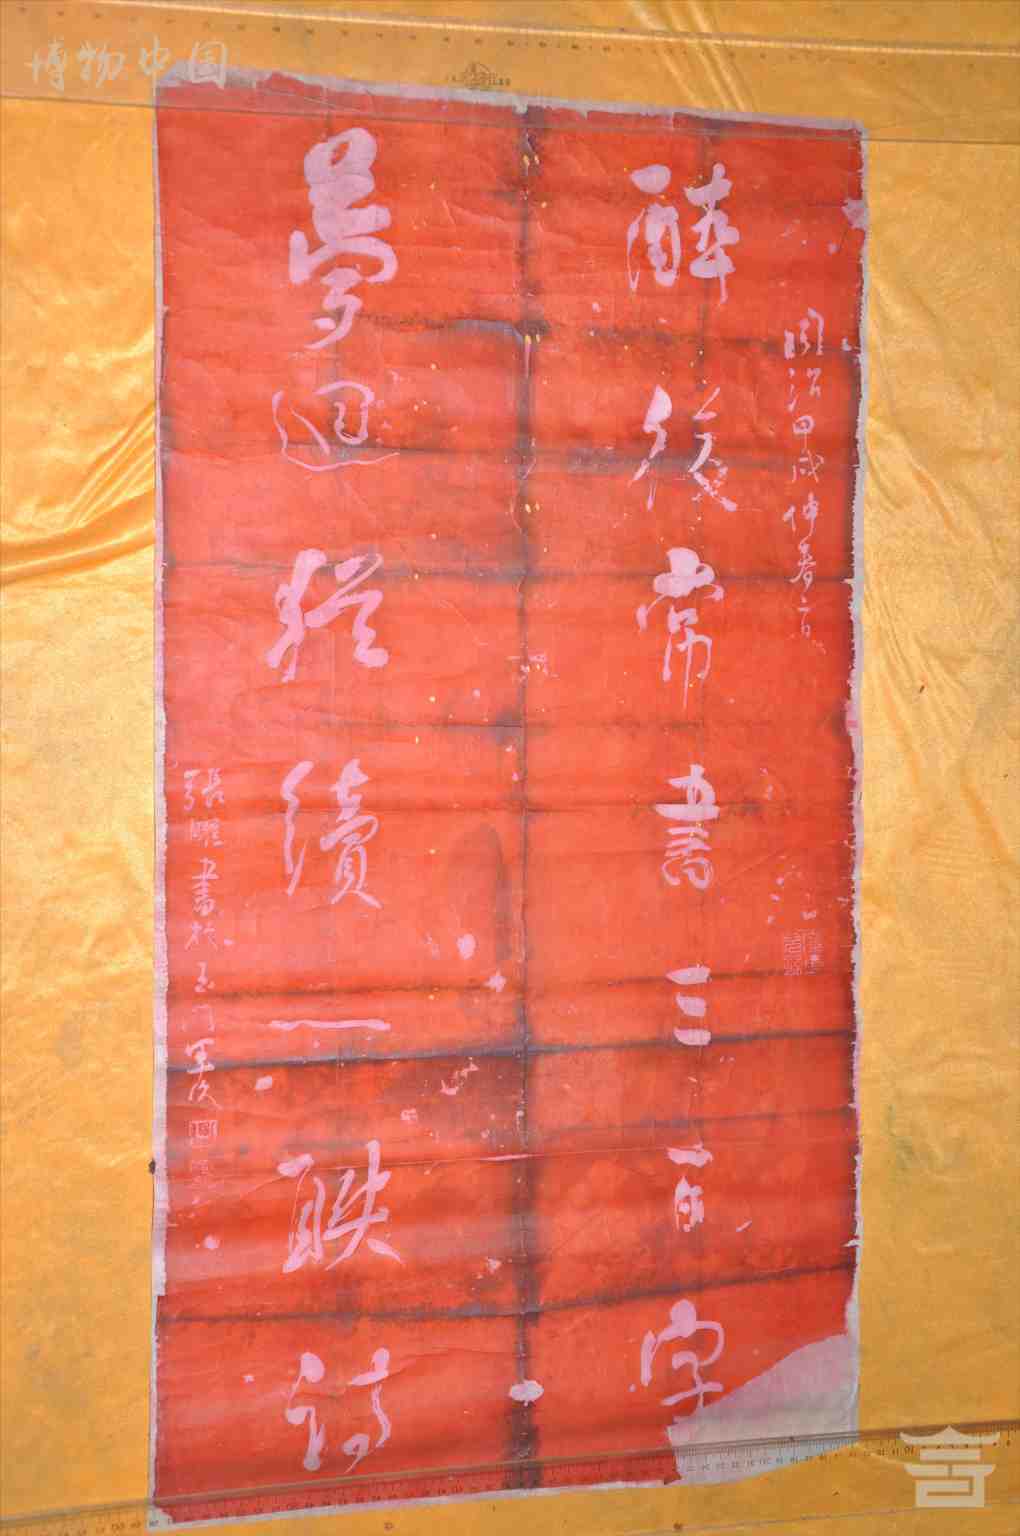 博物中国
同治甲戌仲春二日
醉後常書三百字
夢迴猶續一聯詩
張曜書於玉門軍次